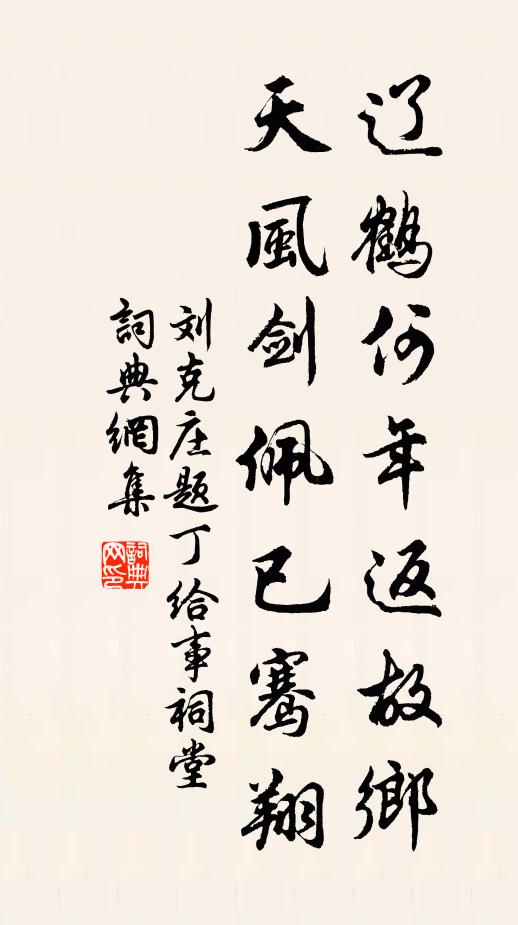 辽鹤何年返故鄉
天風剑佩已骞翔
刘克庄题丁给事祠堂
詞典網集
詞典
网印